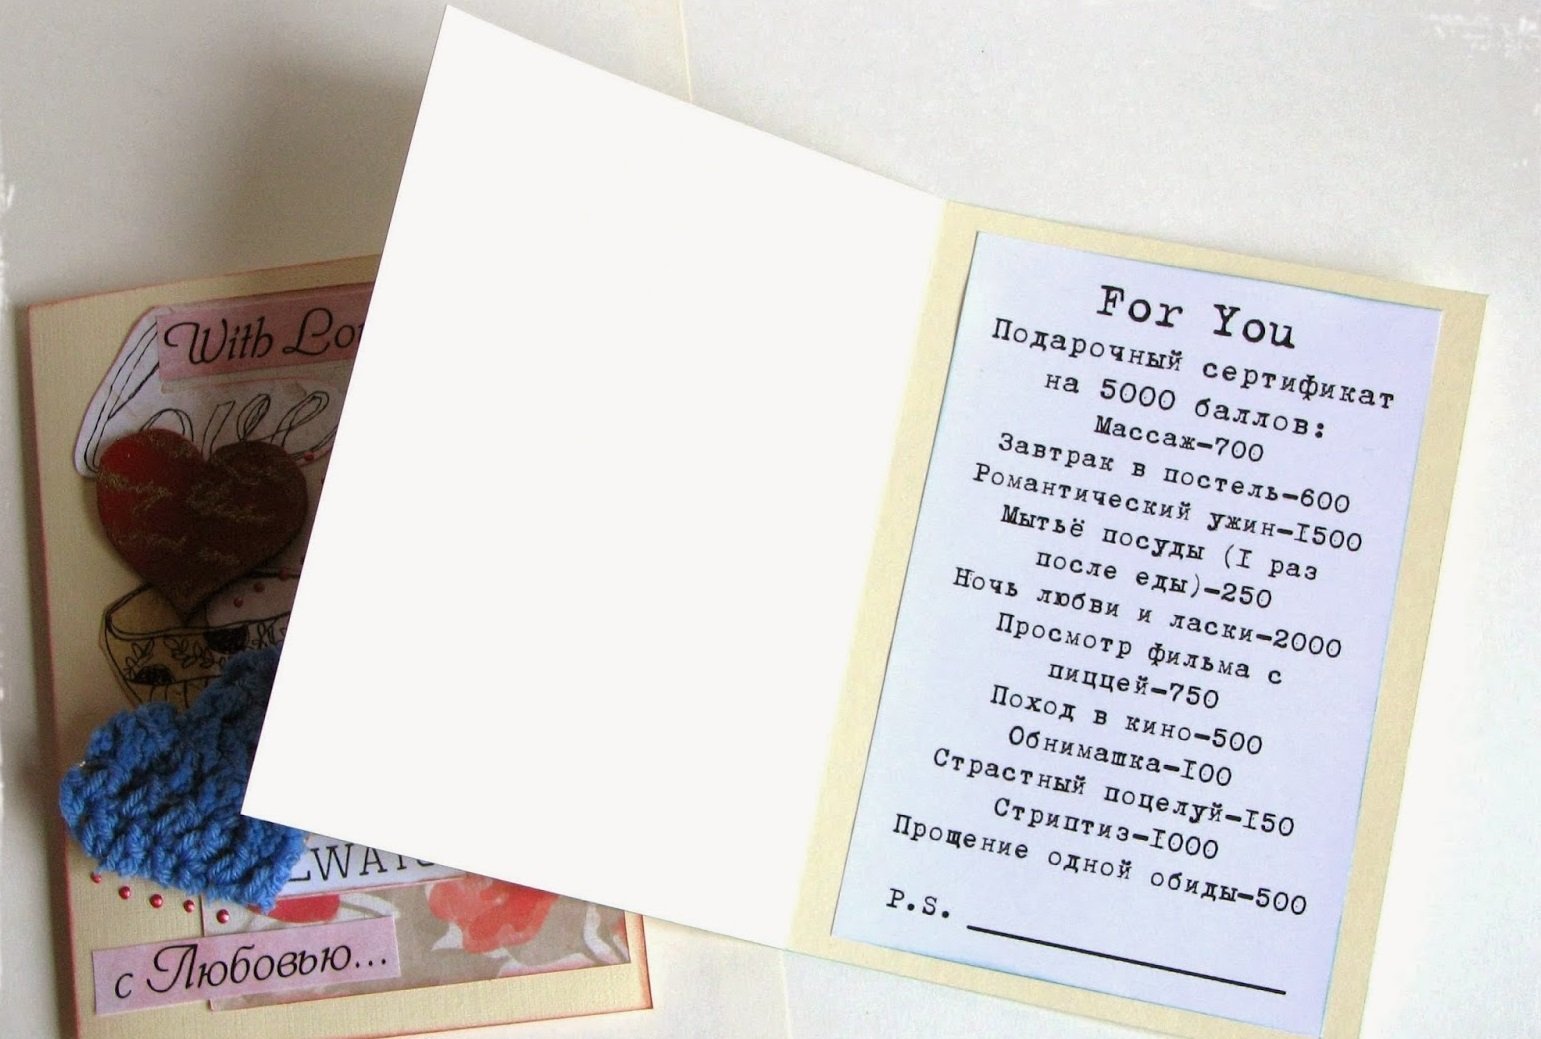 With
For You
Подарочный сертификат
на 5000 баллов:
Массаж-700
Завтрак в постель-600
Романтический ужин-1500
Мытьё посуды (1 раз
после еды)-250
Ночь любви и ласки-2000
Просмотр фильма с
пиццей-750
Поход в кино-500
Обнимашка-100
Страстный поцелуй-150
Стриптиз-1000
Прощение одной обиды-500
P.S.
с Любовью...